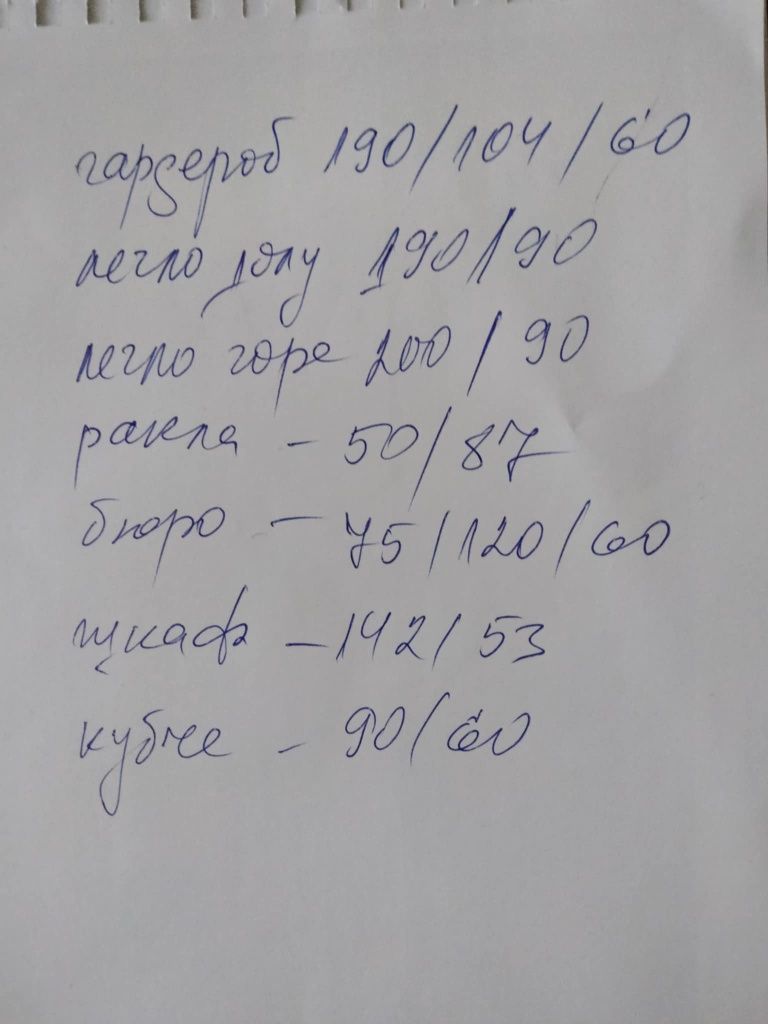 гардероб 190/104/60
легло долу 190/90
легло горе 200/90
ракла - 50/87
бюро - 75/120/60
шкаф - 142/53
кубче - 90/60